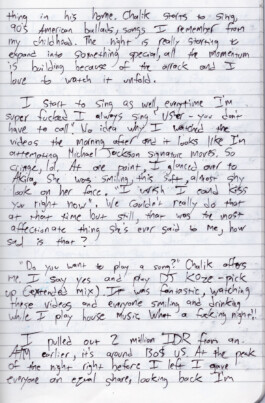 thing in his home. Chalik starts to sing,
90's American ballads, songs I remember from
my childhood. The night is really starting to
expand into something special, all the momentum
is building because of the arrack and I
love to watch it unfold.
I start to sing as well, everytime I'm
super fucked I always sing "USher - you don't
have to call" No idea why. I watched the
videos the morning after and it looks like I'm
attempting Michael Jackson signature moves. So
cringe, lol. At one point I glanced over to
She was smiling, this soft, almost shy
look on her face. "I wish I could kiss
you right now", We couldn't really do that
at that time but still, that was the most
affectionate thing she's ever said to me, how
sad is that?
"Do you want to play a song?" Chalik offers
me. I say yes and play DJ Koze - pick
up (extended mix). It was fantastic, watching
these videos and everyone smiling and drinking
while I play house music. What a fucking night!!
I pulled out 2 million IDR from an
ATM earlier, it's around 130$ US. At the peak
of the night right before I left I gave
everyone an equal share, looking back I'm